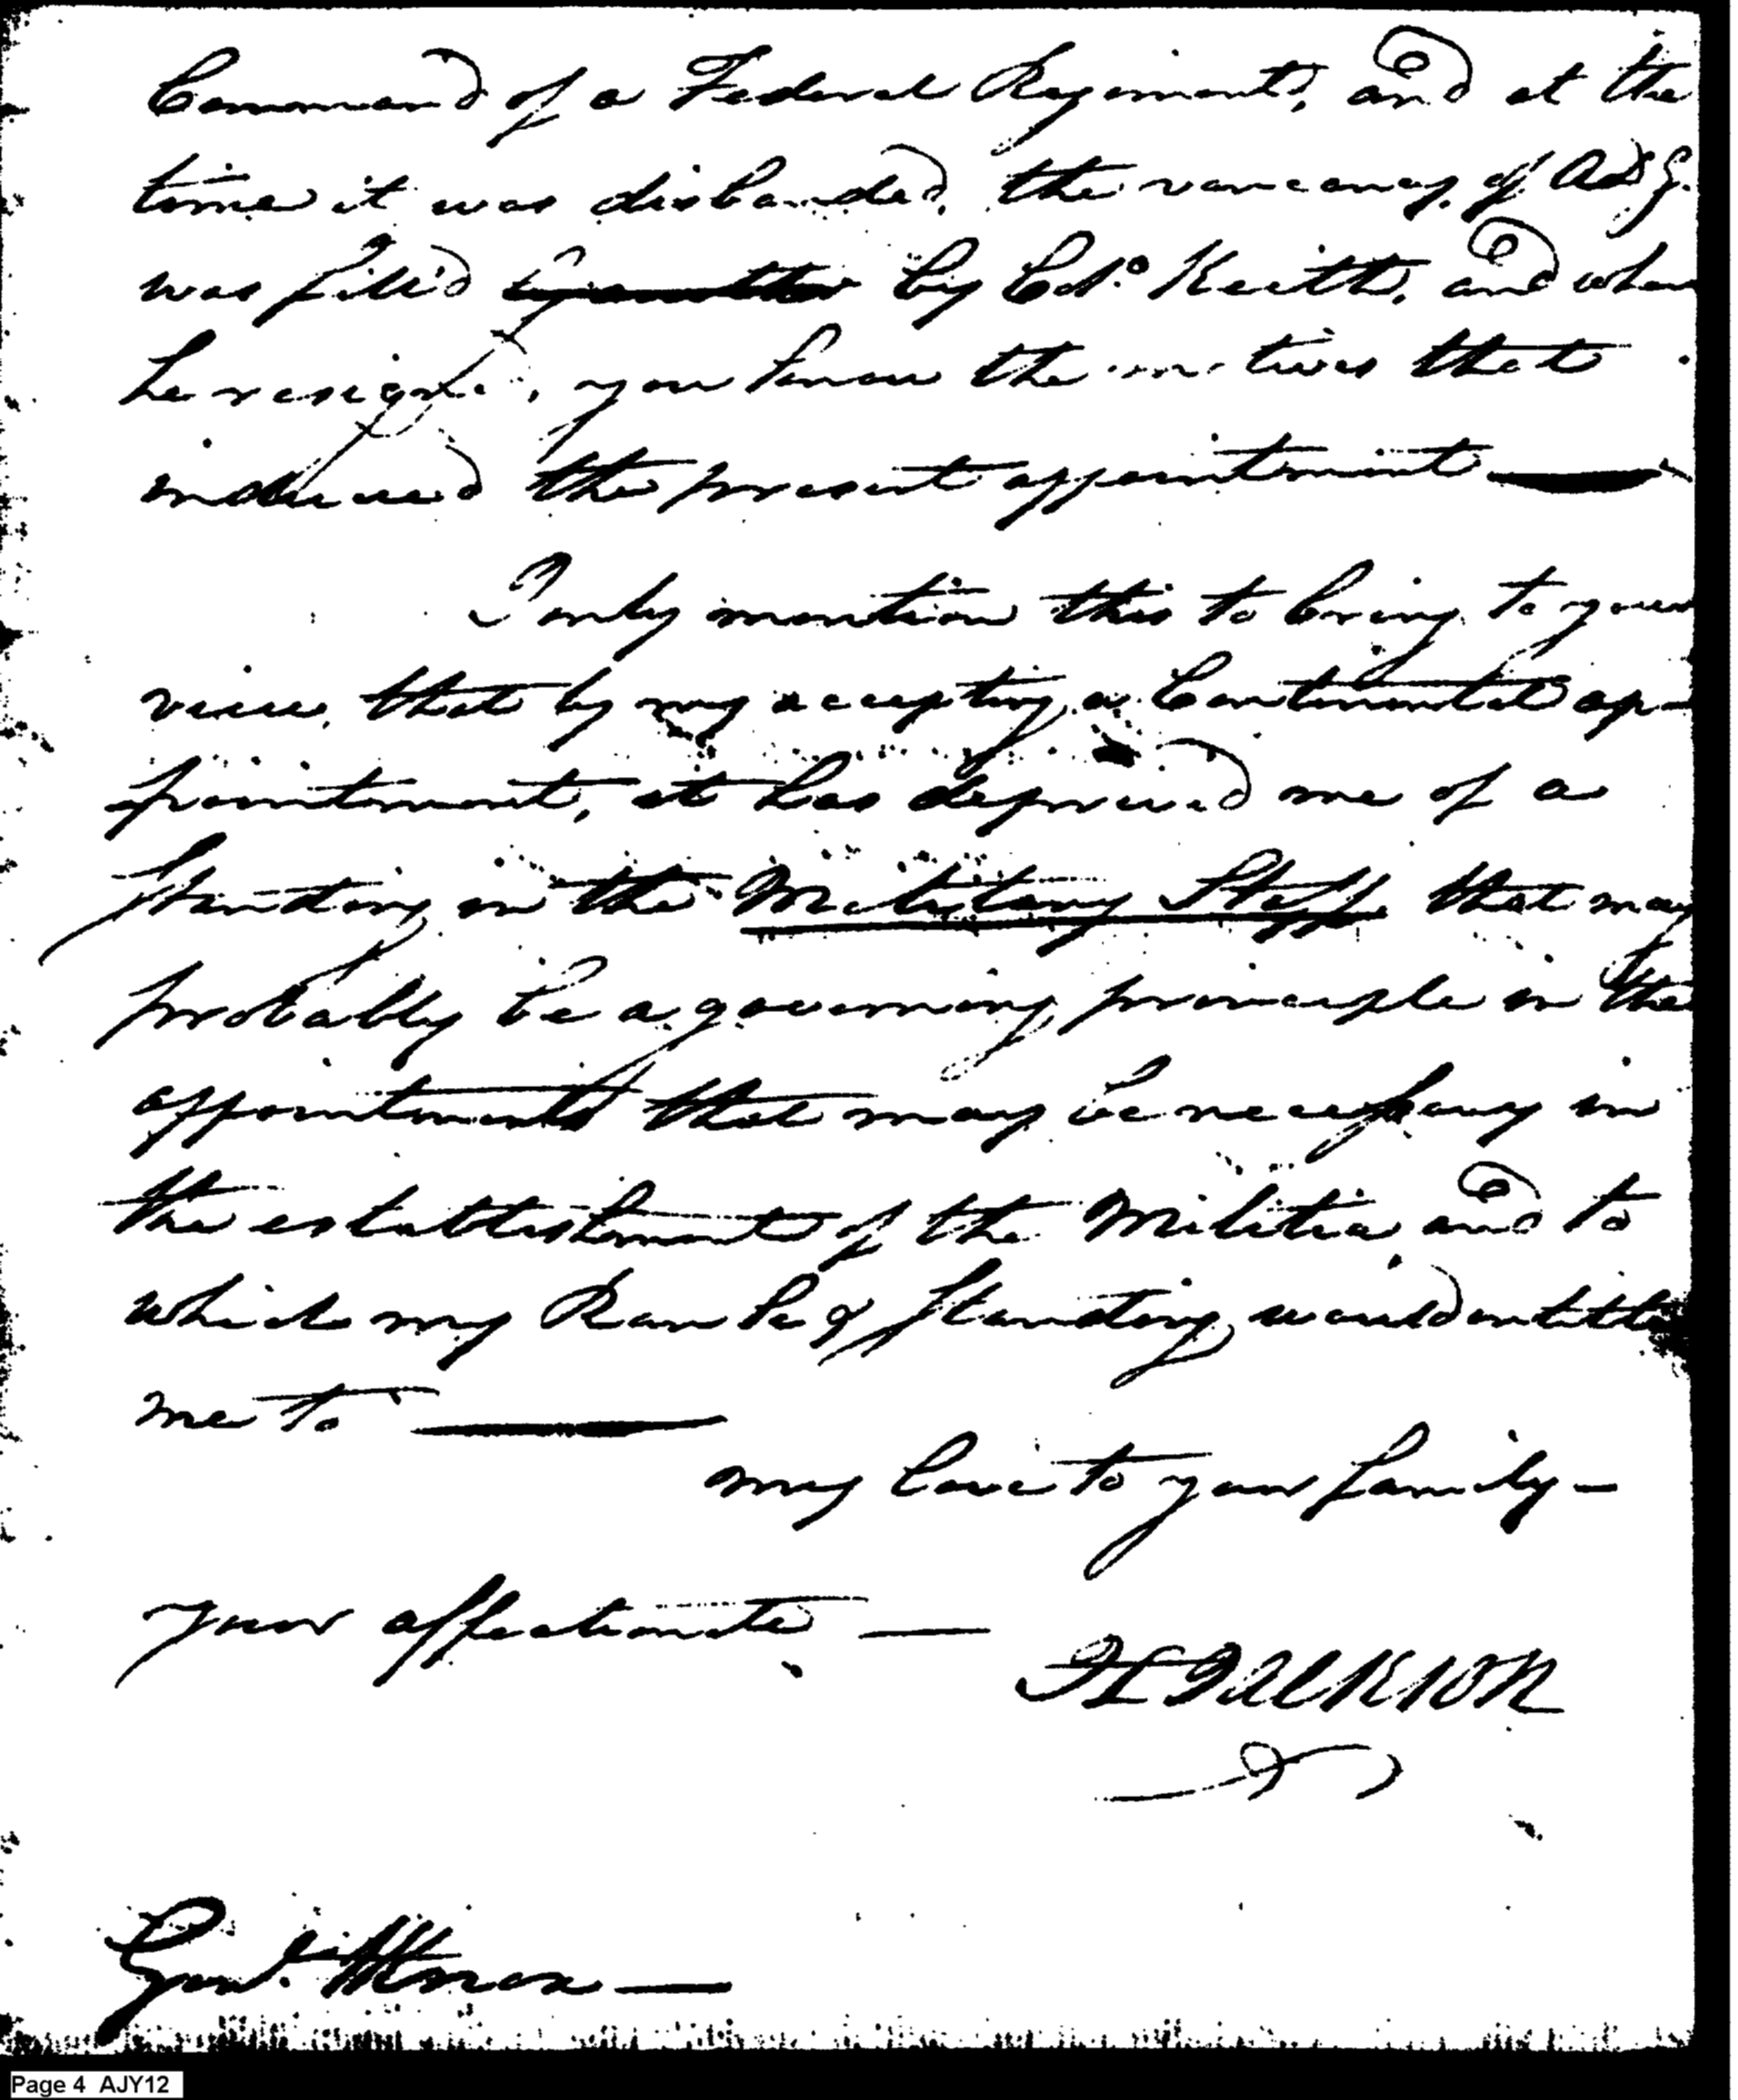 Command of a Federal Regiment, and at the
time it was disbanded, the vancancy of A.D.G.
was fill'd by another by Colo. Keith, and when
he resign'd, you know the motives that
induced the present appointment —
I only mention this to bring to your
view, that by my accepting a Continental ap-
pointment, it has deprived me of a
standing in the Military Staff, that may
probably be a governing principle in the
appointments that may be necessary in
the establishment of the Militia, and to
which my Rank & standing would entitle
me to —
my love to your family —
your affectionate —
H JACKSON
Genl. Knox —
Page 4 AJY12